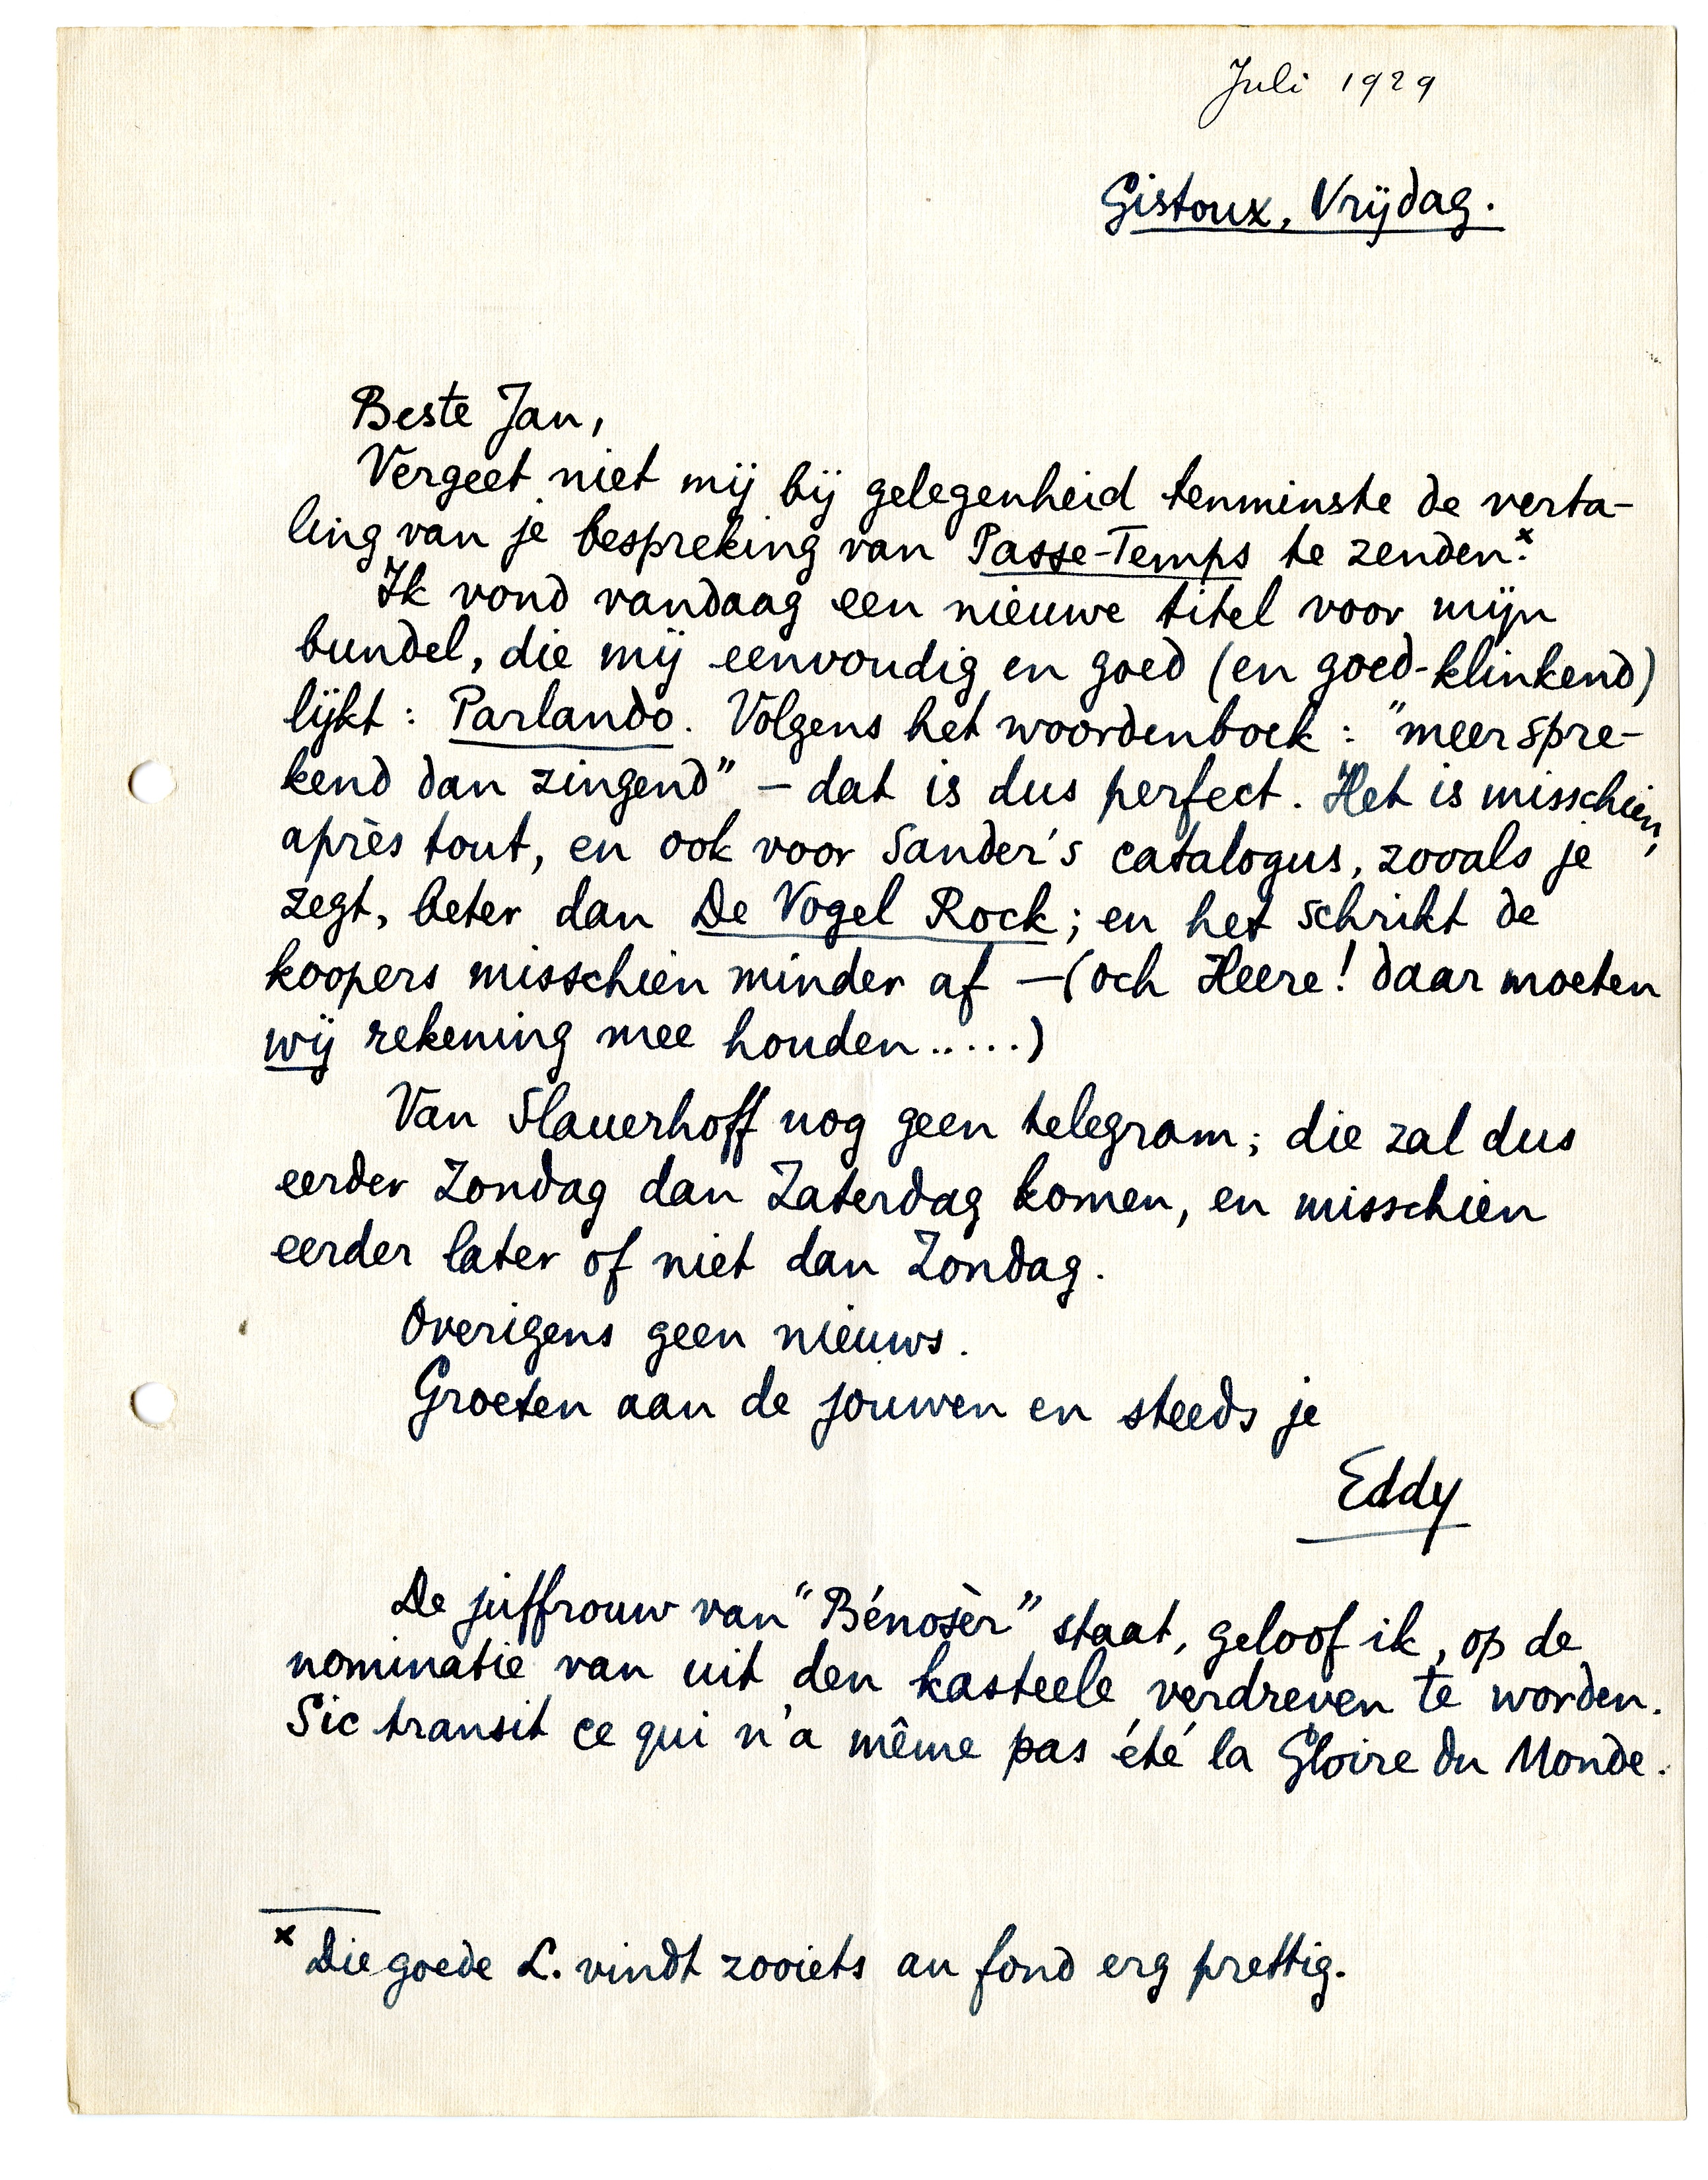 Juli 1929
Gistoux, Vrijdag.
Beste Jan,
Vergeet niet mij bij gelegenheid tenminste de verta-
ling van je bespreking van Passe-Temps te zenden.x
Ik vond vandaag een nieuwe titel voor mijn
bundel, die mij eenvoudig en goed (en goed-klinkend)
lijkt: Parlando. Volgens het woordenboek: "meer spre-
kend dan zingend" – dat is dus perfect. Het is misschien,
après tout, en ook voor Sander's catalogus, zooals je
zegt, beter dan De Vogel Rock; en het schrikt de
koopers misschien minder af – (och Heere! daar moeten
wij rekening mee houden.....)
Van Slauerhoff nog geen telegram; die zal dus
eerder Zondag dan Zaterdag komen, en misschien
eerder later of niet dan Zondag.
Overigens geen nieuws.
Groeten aan de jouwen en steeds je
Eddy
De juffrouw van "Bénosèr" staat, geloof ik, op de
nominatie van uit den kasteele verdreven te worden.
Sic transit ce qui n'a même pas été la Gloire du Monde.
x Die goede L. vindt zooiets au fond erg prettig.